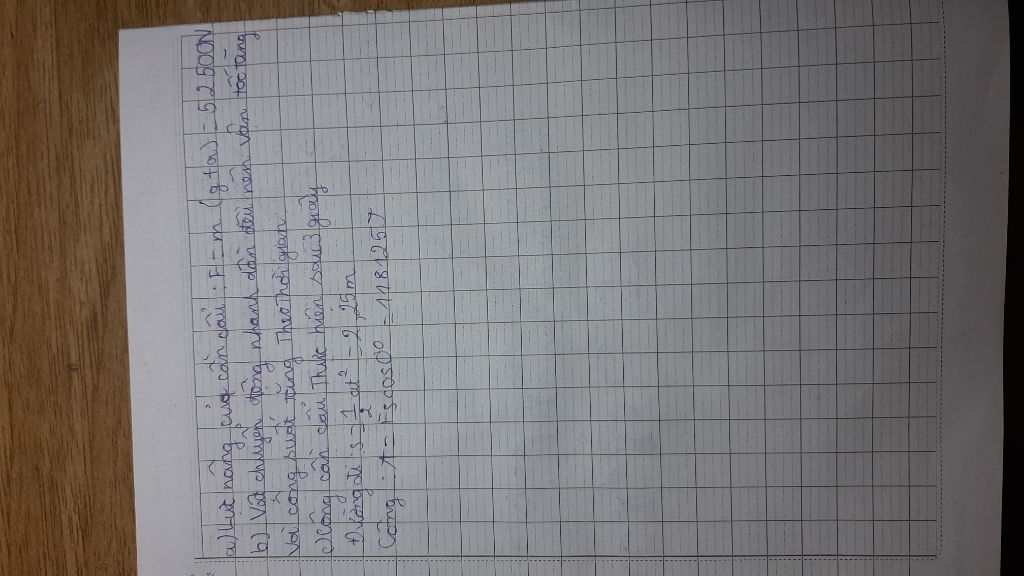 a) Lực nâng của cần cẩu : F = m (g+a) = 52500N
b) Vật chuyển động nhanh dần đều nên vận tốc tăng
Với công suất tăng Theo Thời gian
c) Công cần cẩu Thực hiện sau 3 giây
Đường đi : s = 1/2 at² = 2,25m
Công : A = Fscos0⁰ = 118125J